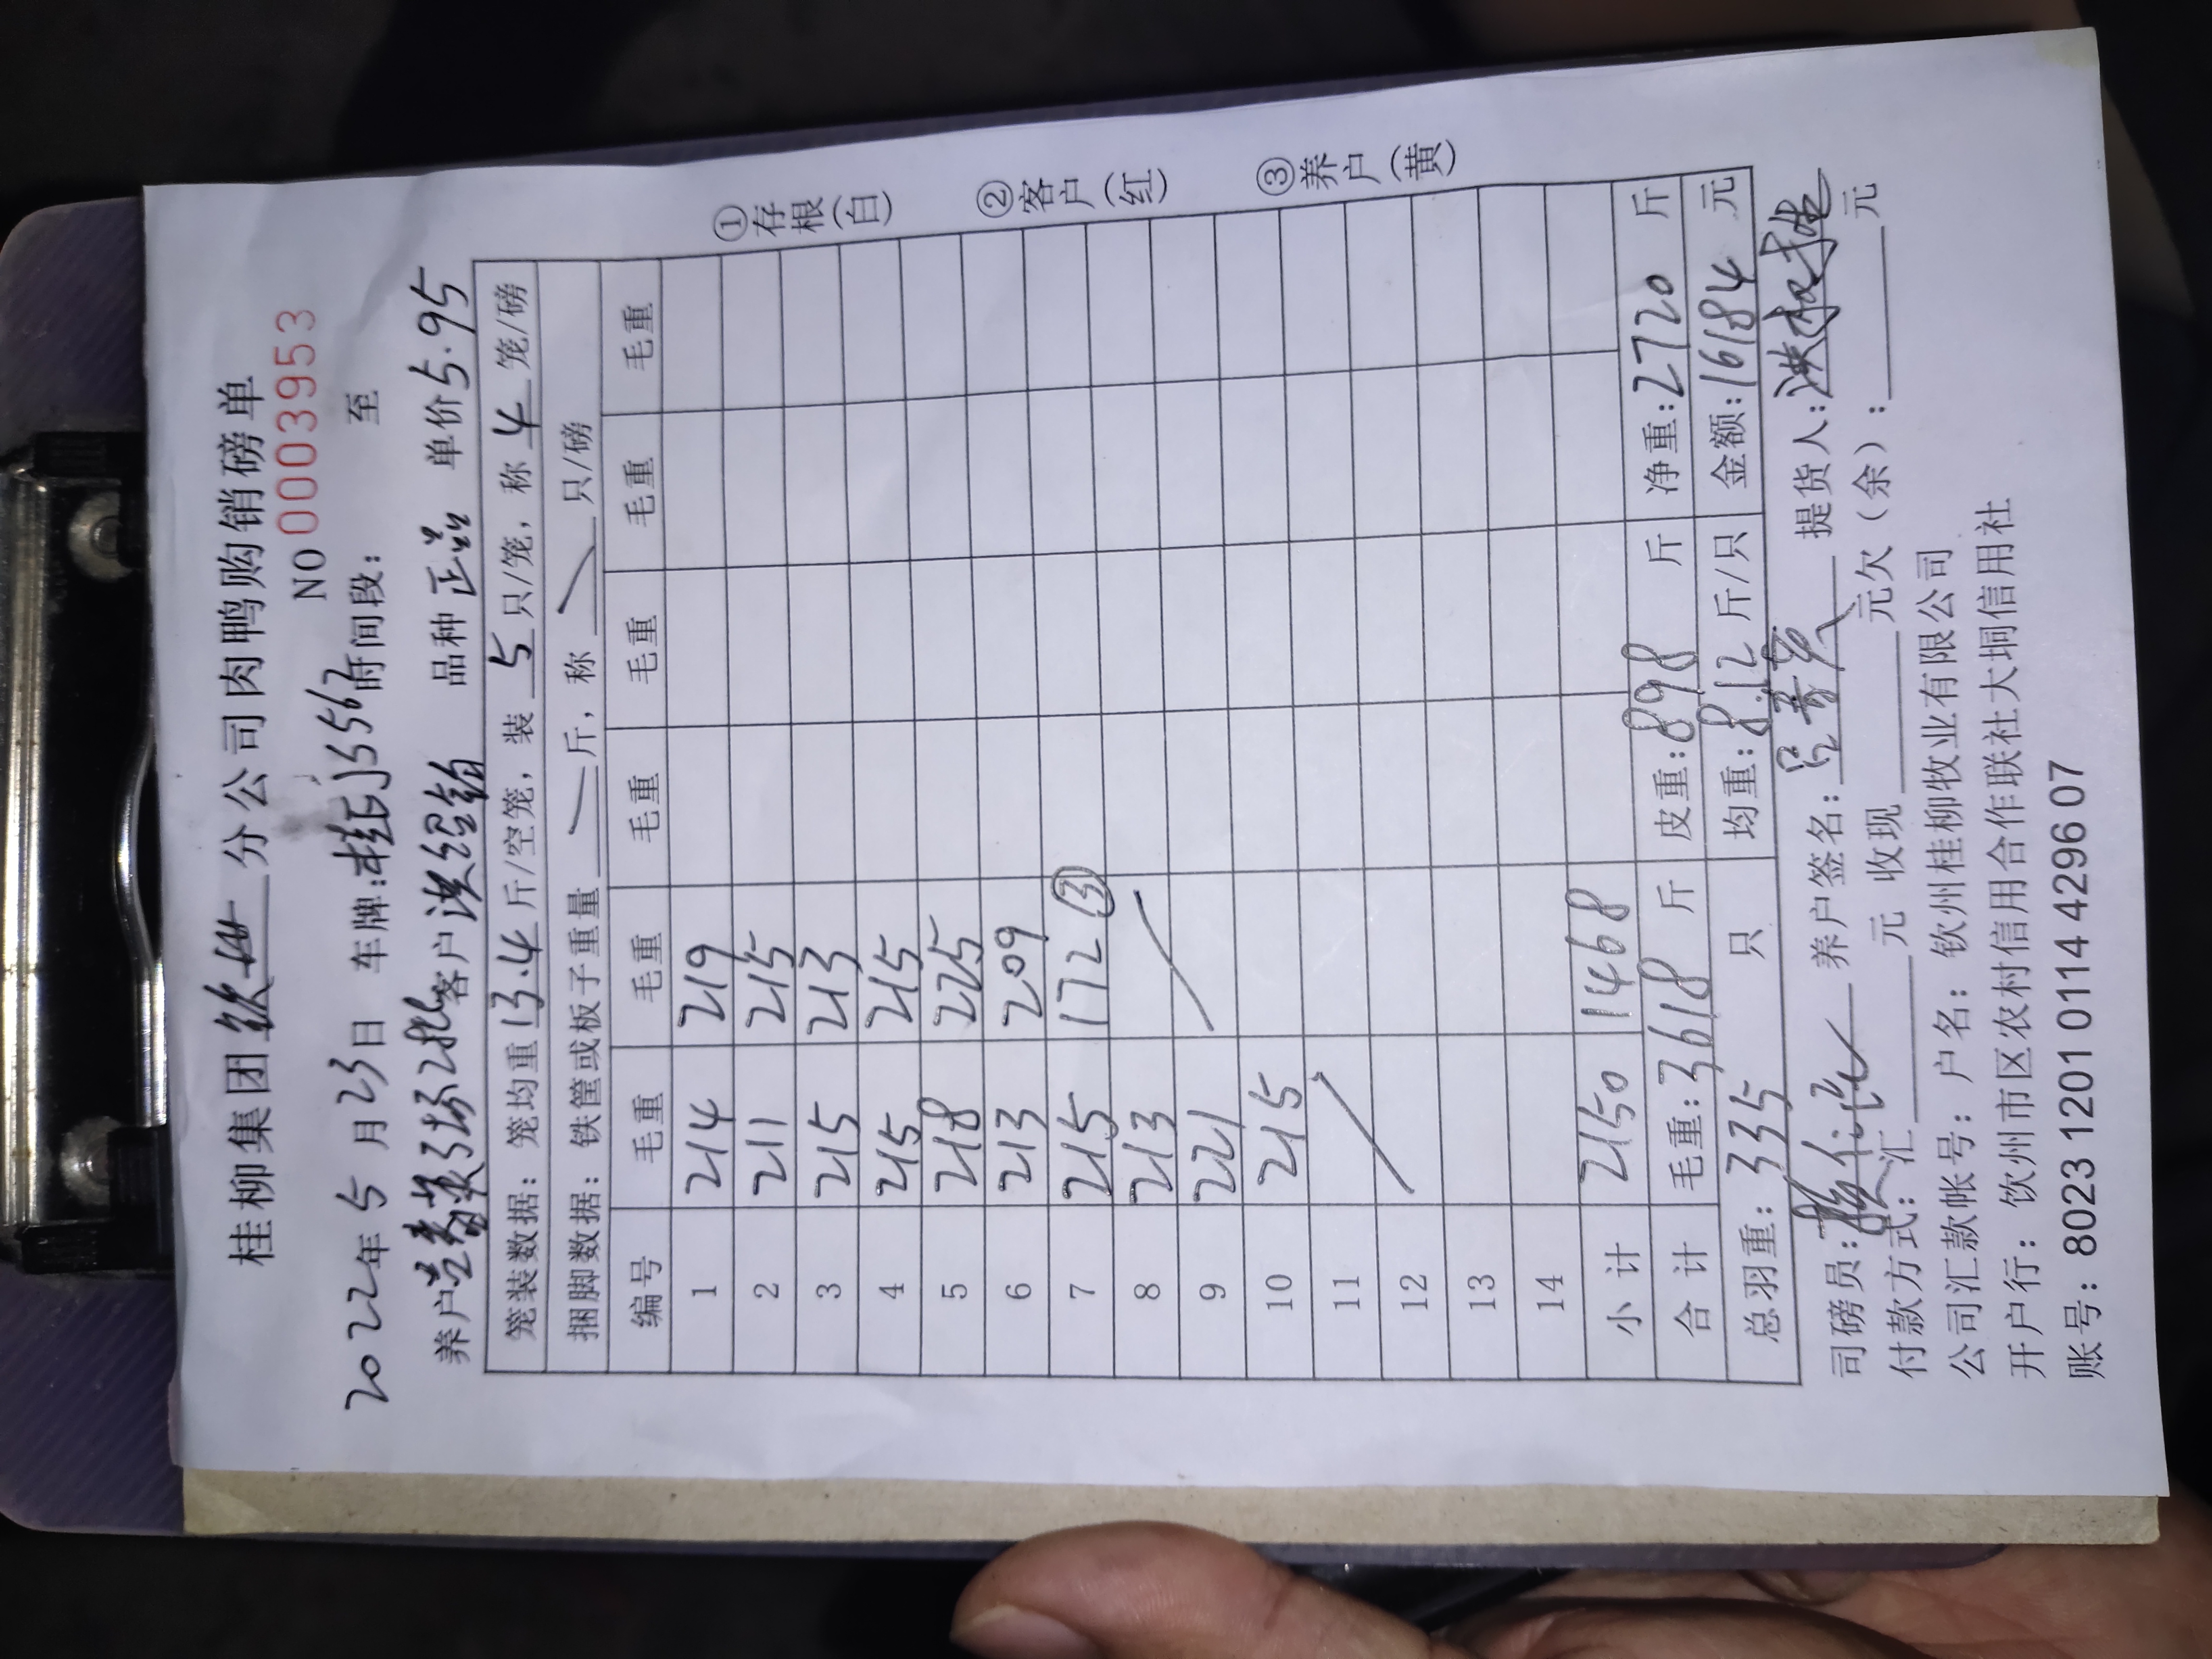 桂柳集团钦州分公司肉鸭购销磅单
NO 0003953
2022年5月23日 车牌:桂J5567时间段: 至
养户 客户洪经韬 品种正品 单价5.95
笼装数据:笼均重13.4斤/空笼,装5只/笼,称4笼/磅
捆脚数据:铁筐或板子重量 斤,称 只/磅
编号 毛重 毛重 毛重 毛重 毛重 毛重
1 214 219
2 211 215
3 215 213
4 215 215
5 218 225
6 213 209
7 215 172③
8 213
9 221
10 215
11
12
13
14
小计 2150 1468
合计 毛重:3618斤 皮重:898斤 净重:2720斤
总羽重:335只 均重:8.12斤/只 金额:16184元
司磅员: 养户签名: 提货人:
付款方式:汇 元 收现 元欠(余): 元
公司汇款帐号:户名:钦州桂柳牧业有限公司
开户行:钦州市区农村信用合作联社大垌信用社
账号:8023 1201 0114 4296 07
①存根(白)
②客户(红)
③养户(黄)